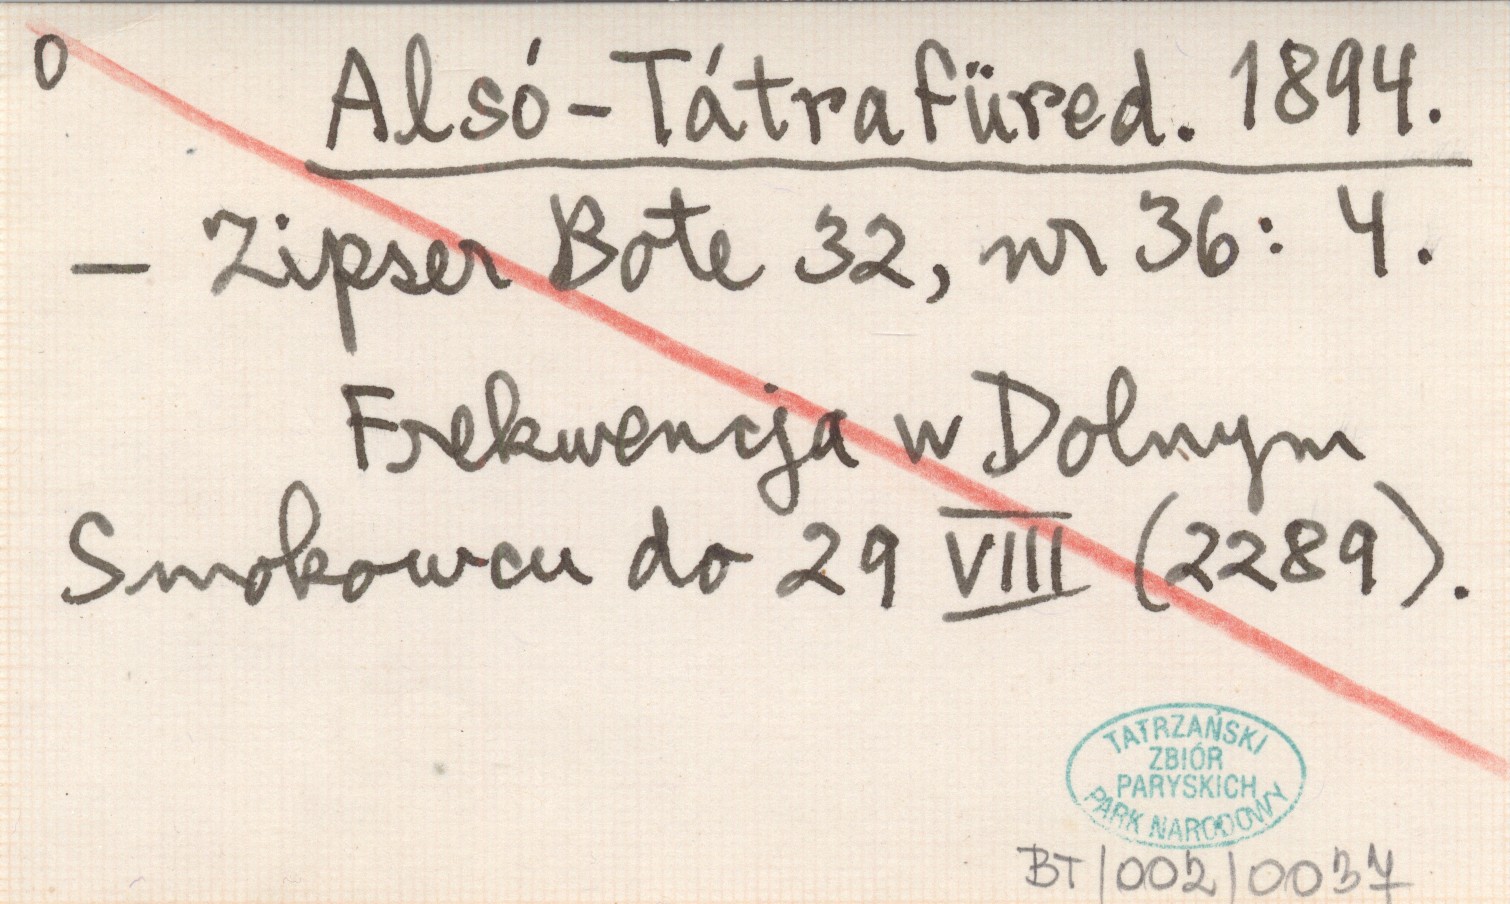 0
Alsó-Tátrafüred. 1894.
– Zipser Bote 32, nr 36: 4.
Frekwencja w Dolnym
Smokowcu do 29 VIII (2289).
TATRZAŃSKI
ZBIÓR
PARYSKICH
PARK NARODOWY
BT/002/0037